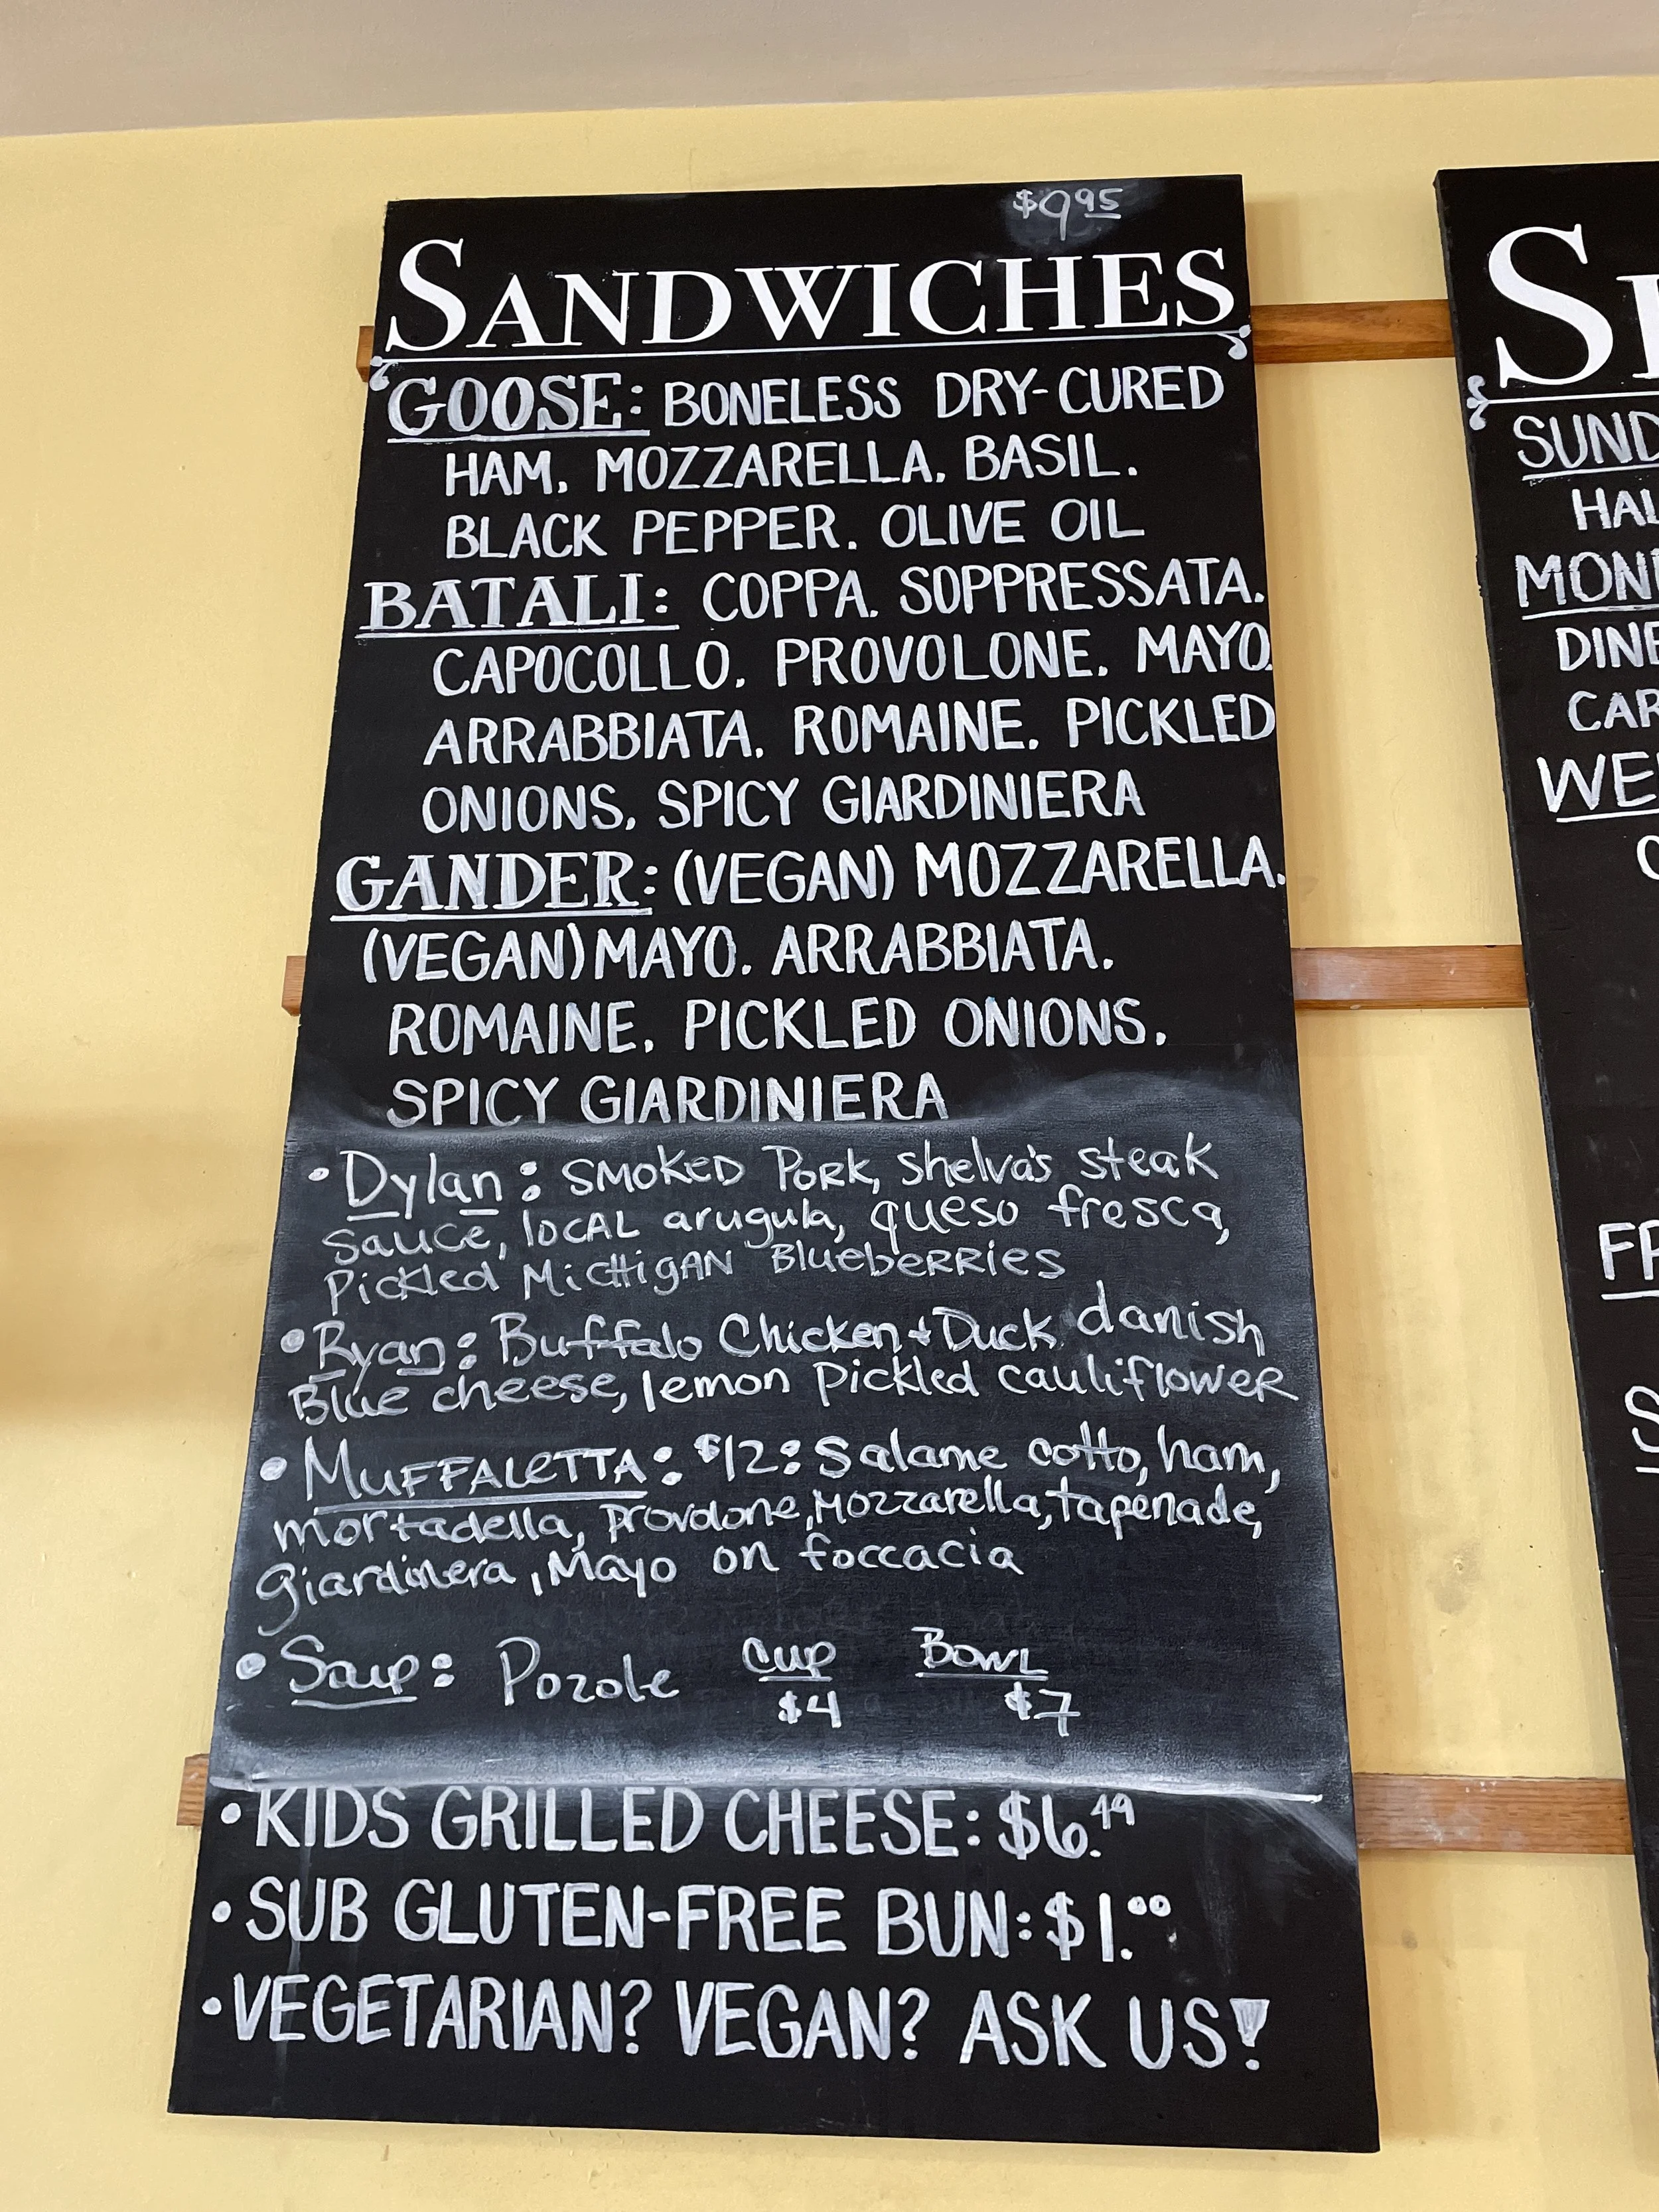 $9.95
SANDWICHES
GOOSE: BONELESS DRY-CURED
HAM. MOZZARELLA. BASIL.
BLACK PEPPER. OLIVE OIL
BATALI: COPPA. SOPPRESSATA.
CAPOCOLLO. PROVOLONE. MAYO.
ARRABBIATA. ROMAINE. PICKLED
ONIONS. SPICY GIARDINIERA
GANDER: (VEGAN) MOZZARELLA.
(VEGAN) MAYO. ARRABBIATA.
ROMAINE. PICKLED ONIONS.
SPICY GIARDINIERA
• Dylan: SMOKED PORK, Shelva's steak
sauce, loCAL arugula, queso fresca,
Pickled MicHigAN BlueberRies
• Ryan: Buffalo Chicken + Duck danish
Blue cheese, lemon Pickled cauliflower
• MUFFALeTTA: $12: Salame cotto, ham,
mortadella, provolone, Mozzarella, tapenade,
giardinera, Mayo on foccacia
• Soup: Pozole Cup Bowl
$4 $7
• KIDS GRILLED CHEESE: $6.49
• SUB GLUTEN-FREE BUN: $1.00
• VEGETARIAN? VEGAN? ASK US!
SUND
HAL
MON
DINE
CAR
WE
FR
S